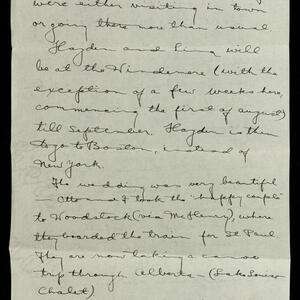 were either visiting in town
or going there more than usual.
Hayden and Lina will
be at the Windemere (with the
exception of a few weeks here,
commencing the first of august)
till September. Hayden is then
to go to Boston, instead of
New York.
The wedding was very beautiful
Otto and I took the "happy couple"
to Woodstock (via McHenry), where
they boarded the train for St Paul
They are now taking a canoe
trip through Alberta - (Lake Louise
Chalet)